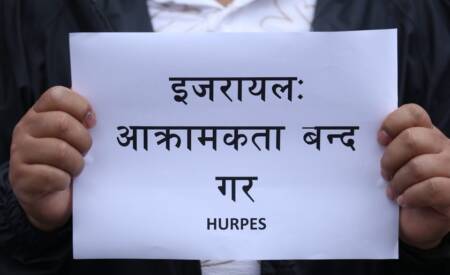 इजरायलः
आक्रामकता बन्द
गर
HURPES